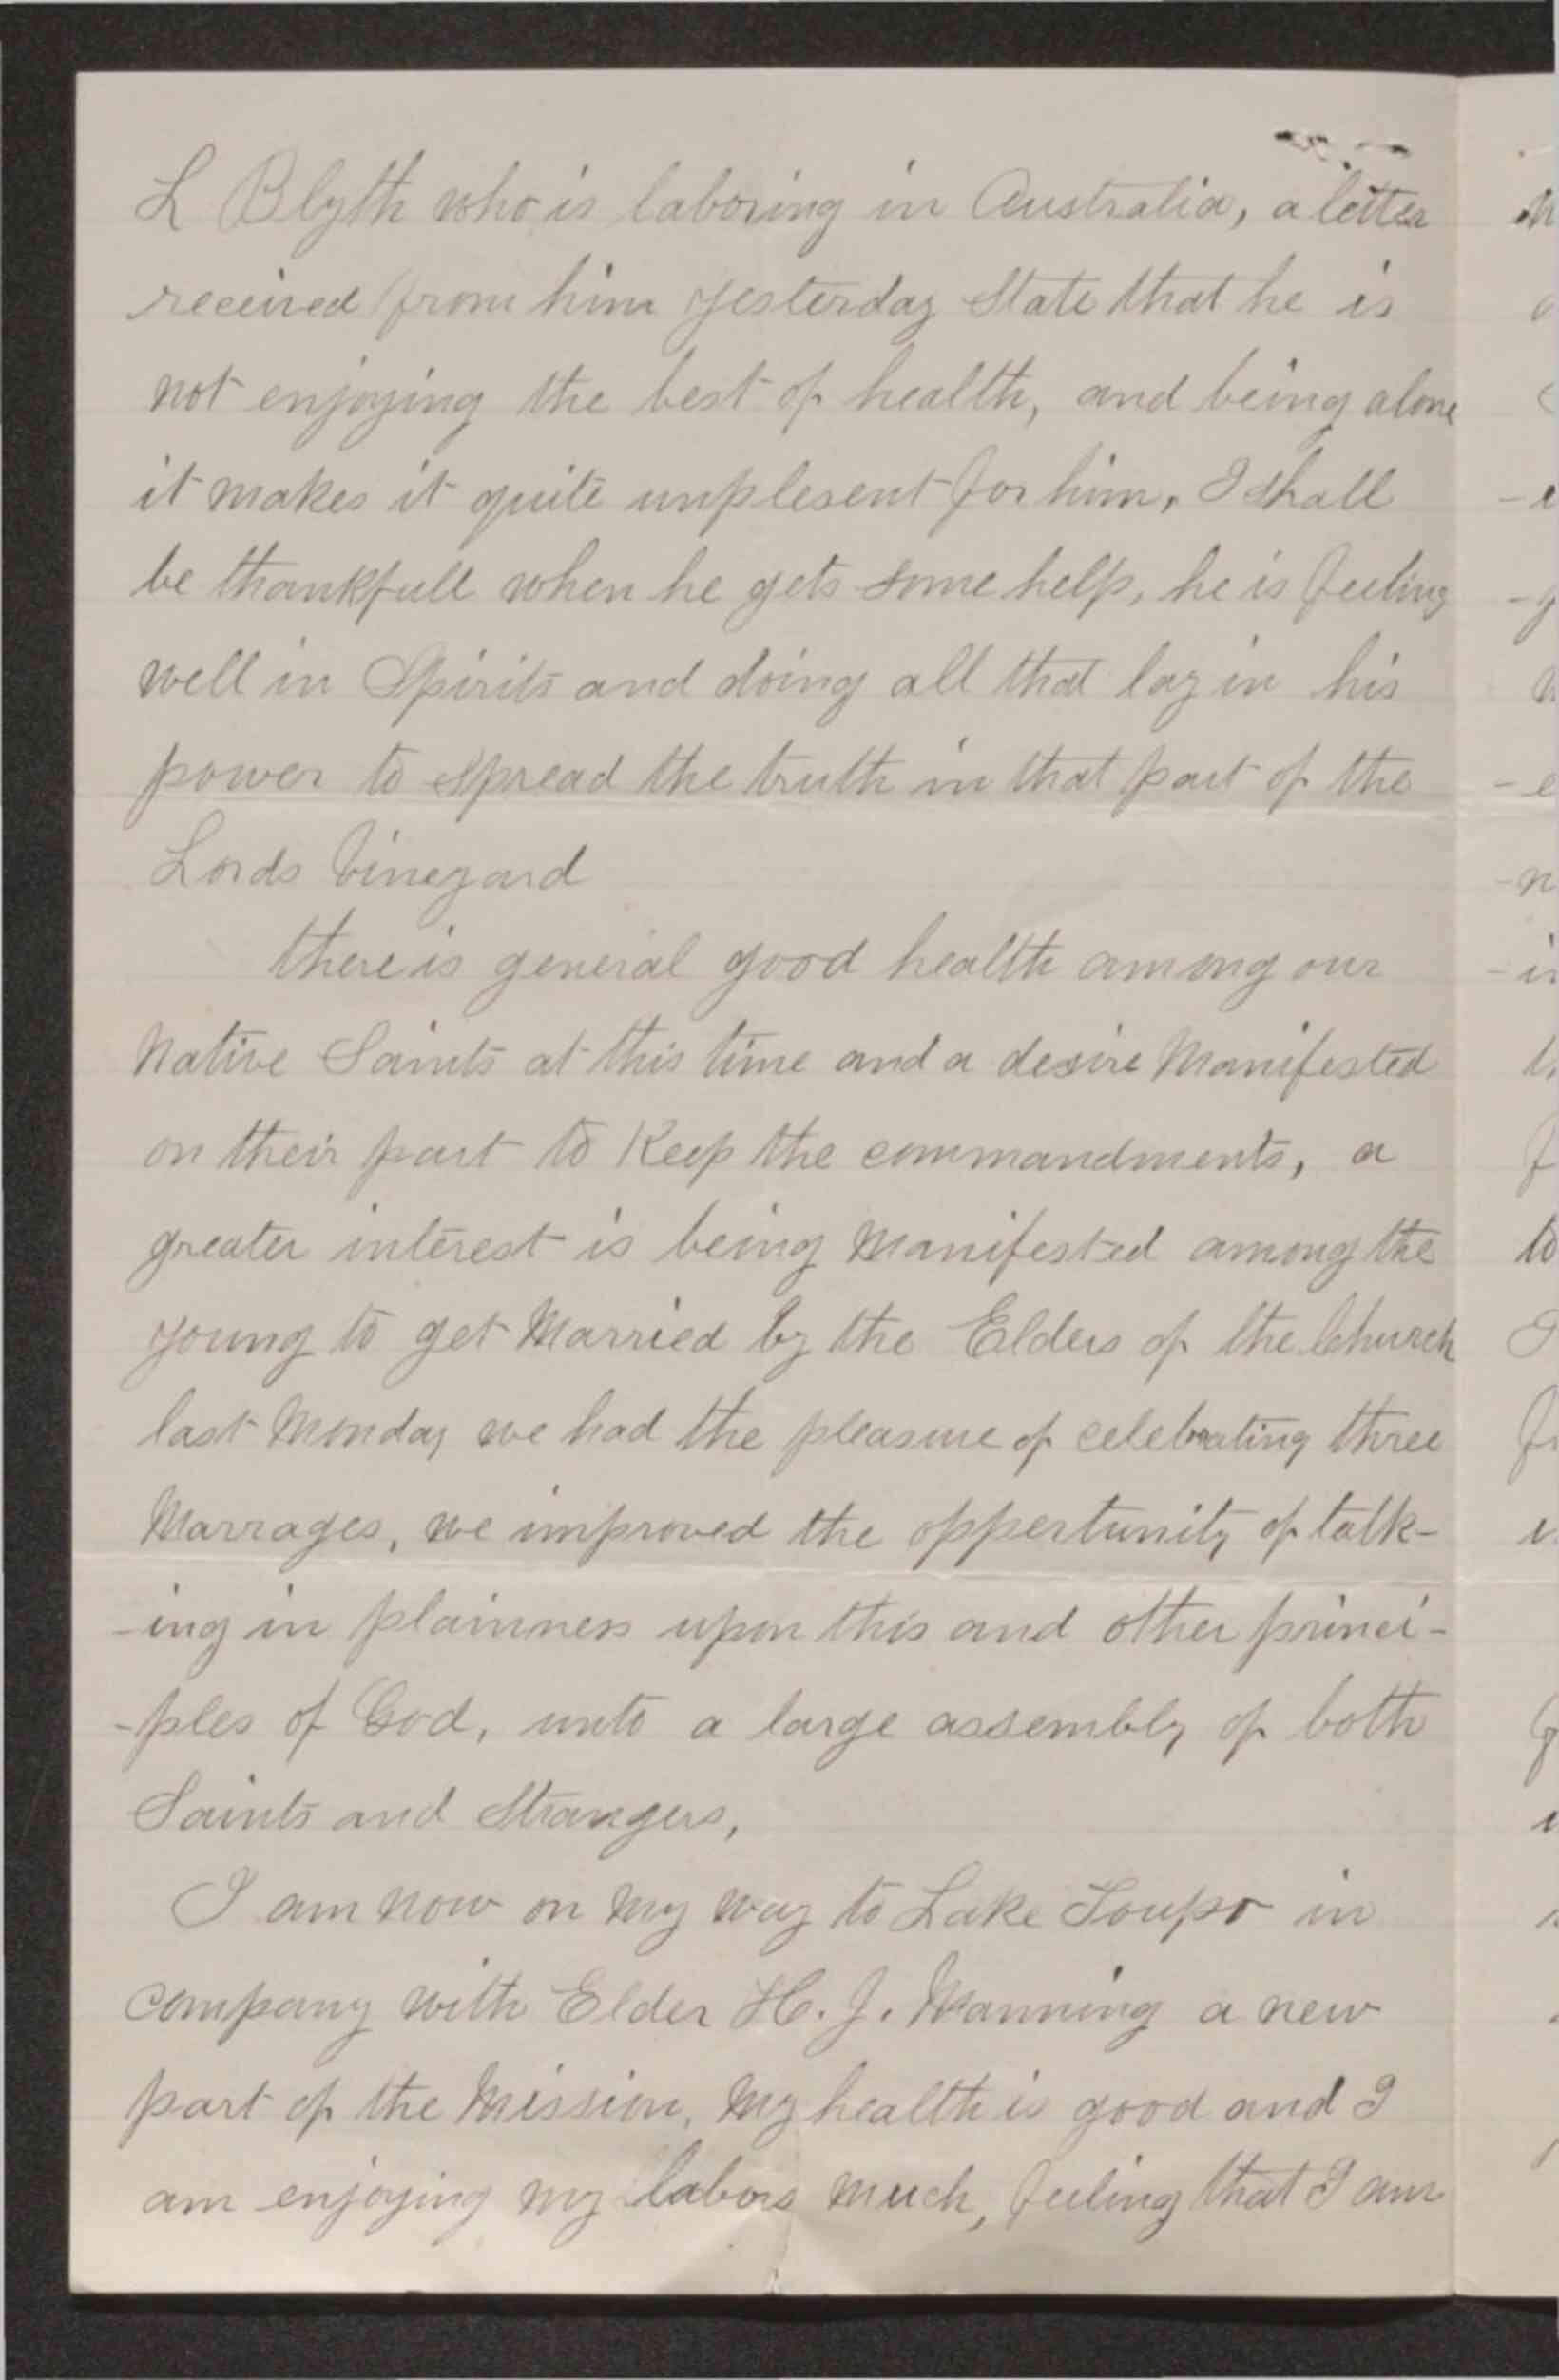 L Blyth who is laboring in Australia, a letter
received from him yesterday State that he is
not enjoying the best of health, and being alone
it makes it quite unplesent for him, I shall
be thankfull when he gets some help, he is feeling
well in Spirits and doing all that lay in his
power to spread the truth in that part of the
Lords Vineyard
there is general good health among our
Native Saints at this time and a desire Manifested
on their part to Keep the commandments, a
greater interest is being Manifested among the
young to get Married by the Elders of the Church
last Monday we had the pleasure of celebrating three
Marrages, we improved the oppertunity of talk-
-ing in plainness upon this and other princi-
-ples of God, unto a large assembly of both
Saints and Strangers,
I am now on my way to Lake Toupo in
company with Elder H. J. Manning a new
part of the Mission, My health is good and I
am enjoying my labors much, feeling that I am